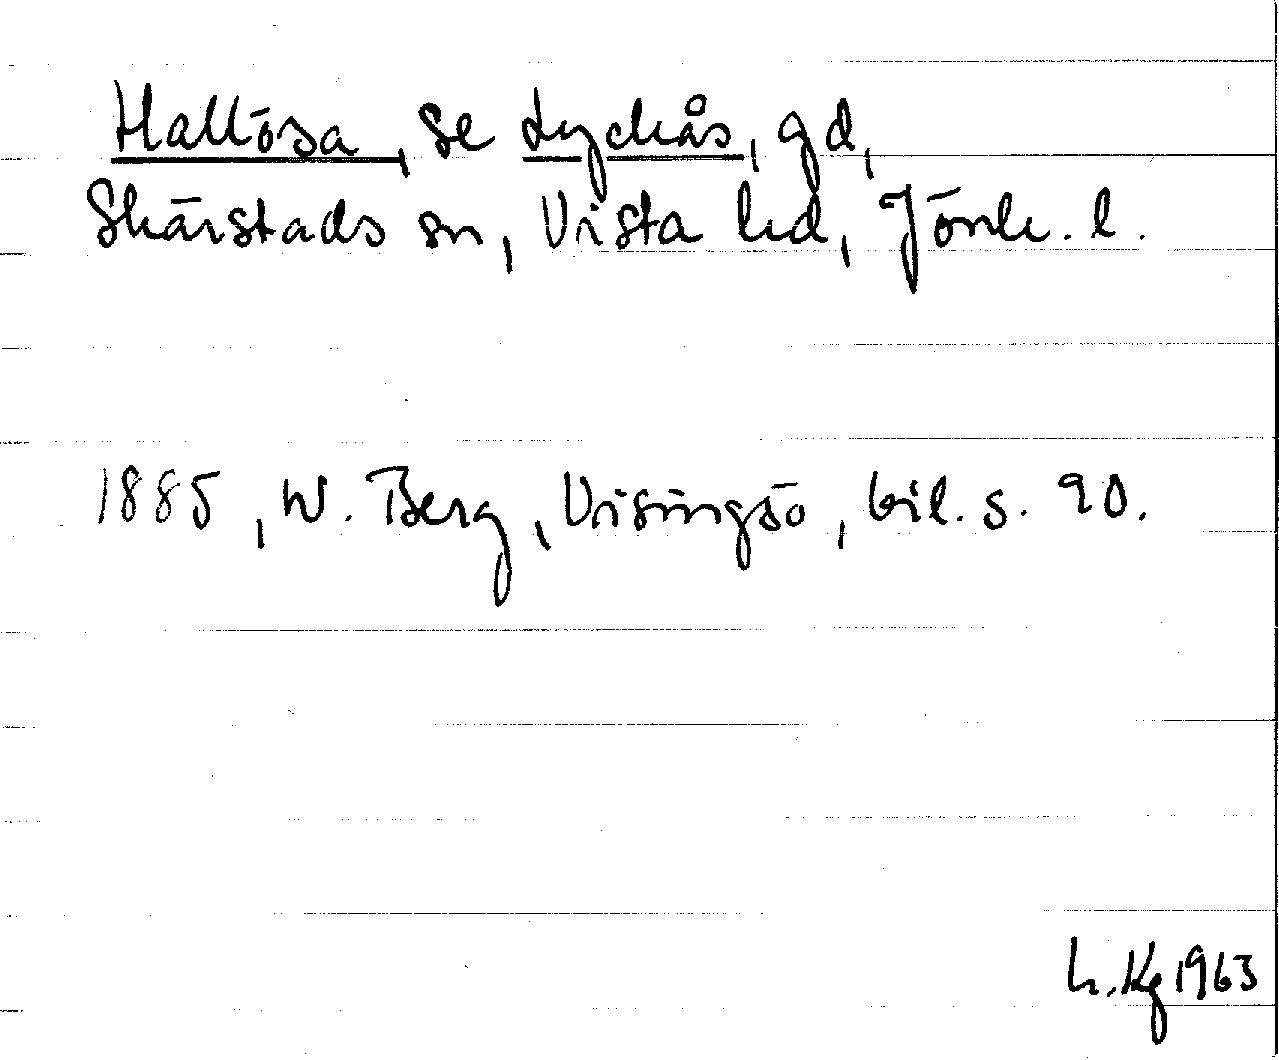 Hallösa, se Lyckås, gd,
Skärstads sn, Vista hd, Jönk. l.
1885, W. Berg, Visingsö, bil. s. 90.
L. Kg 1963